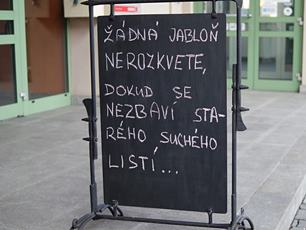 ŽÁDNÁ JABLOŇ
NEROZKVETE,
DOKUD SE
NEZBAVÍ STA-
RÉHO SUCHÉHO
LISTÍ...